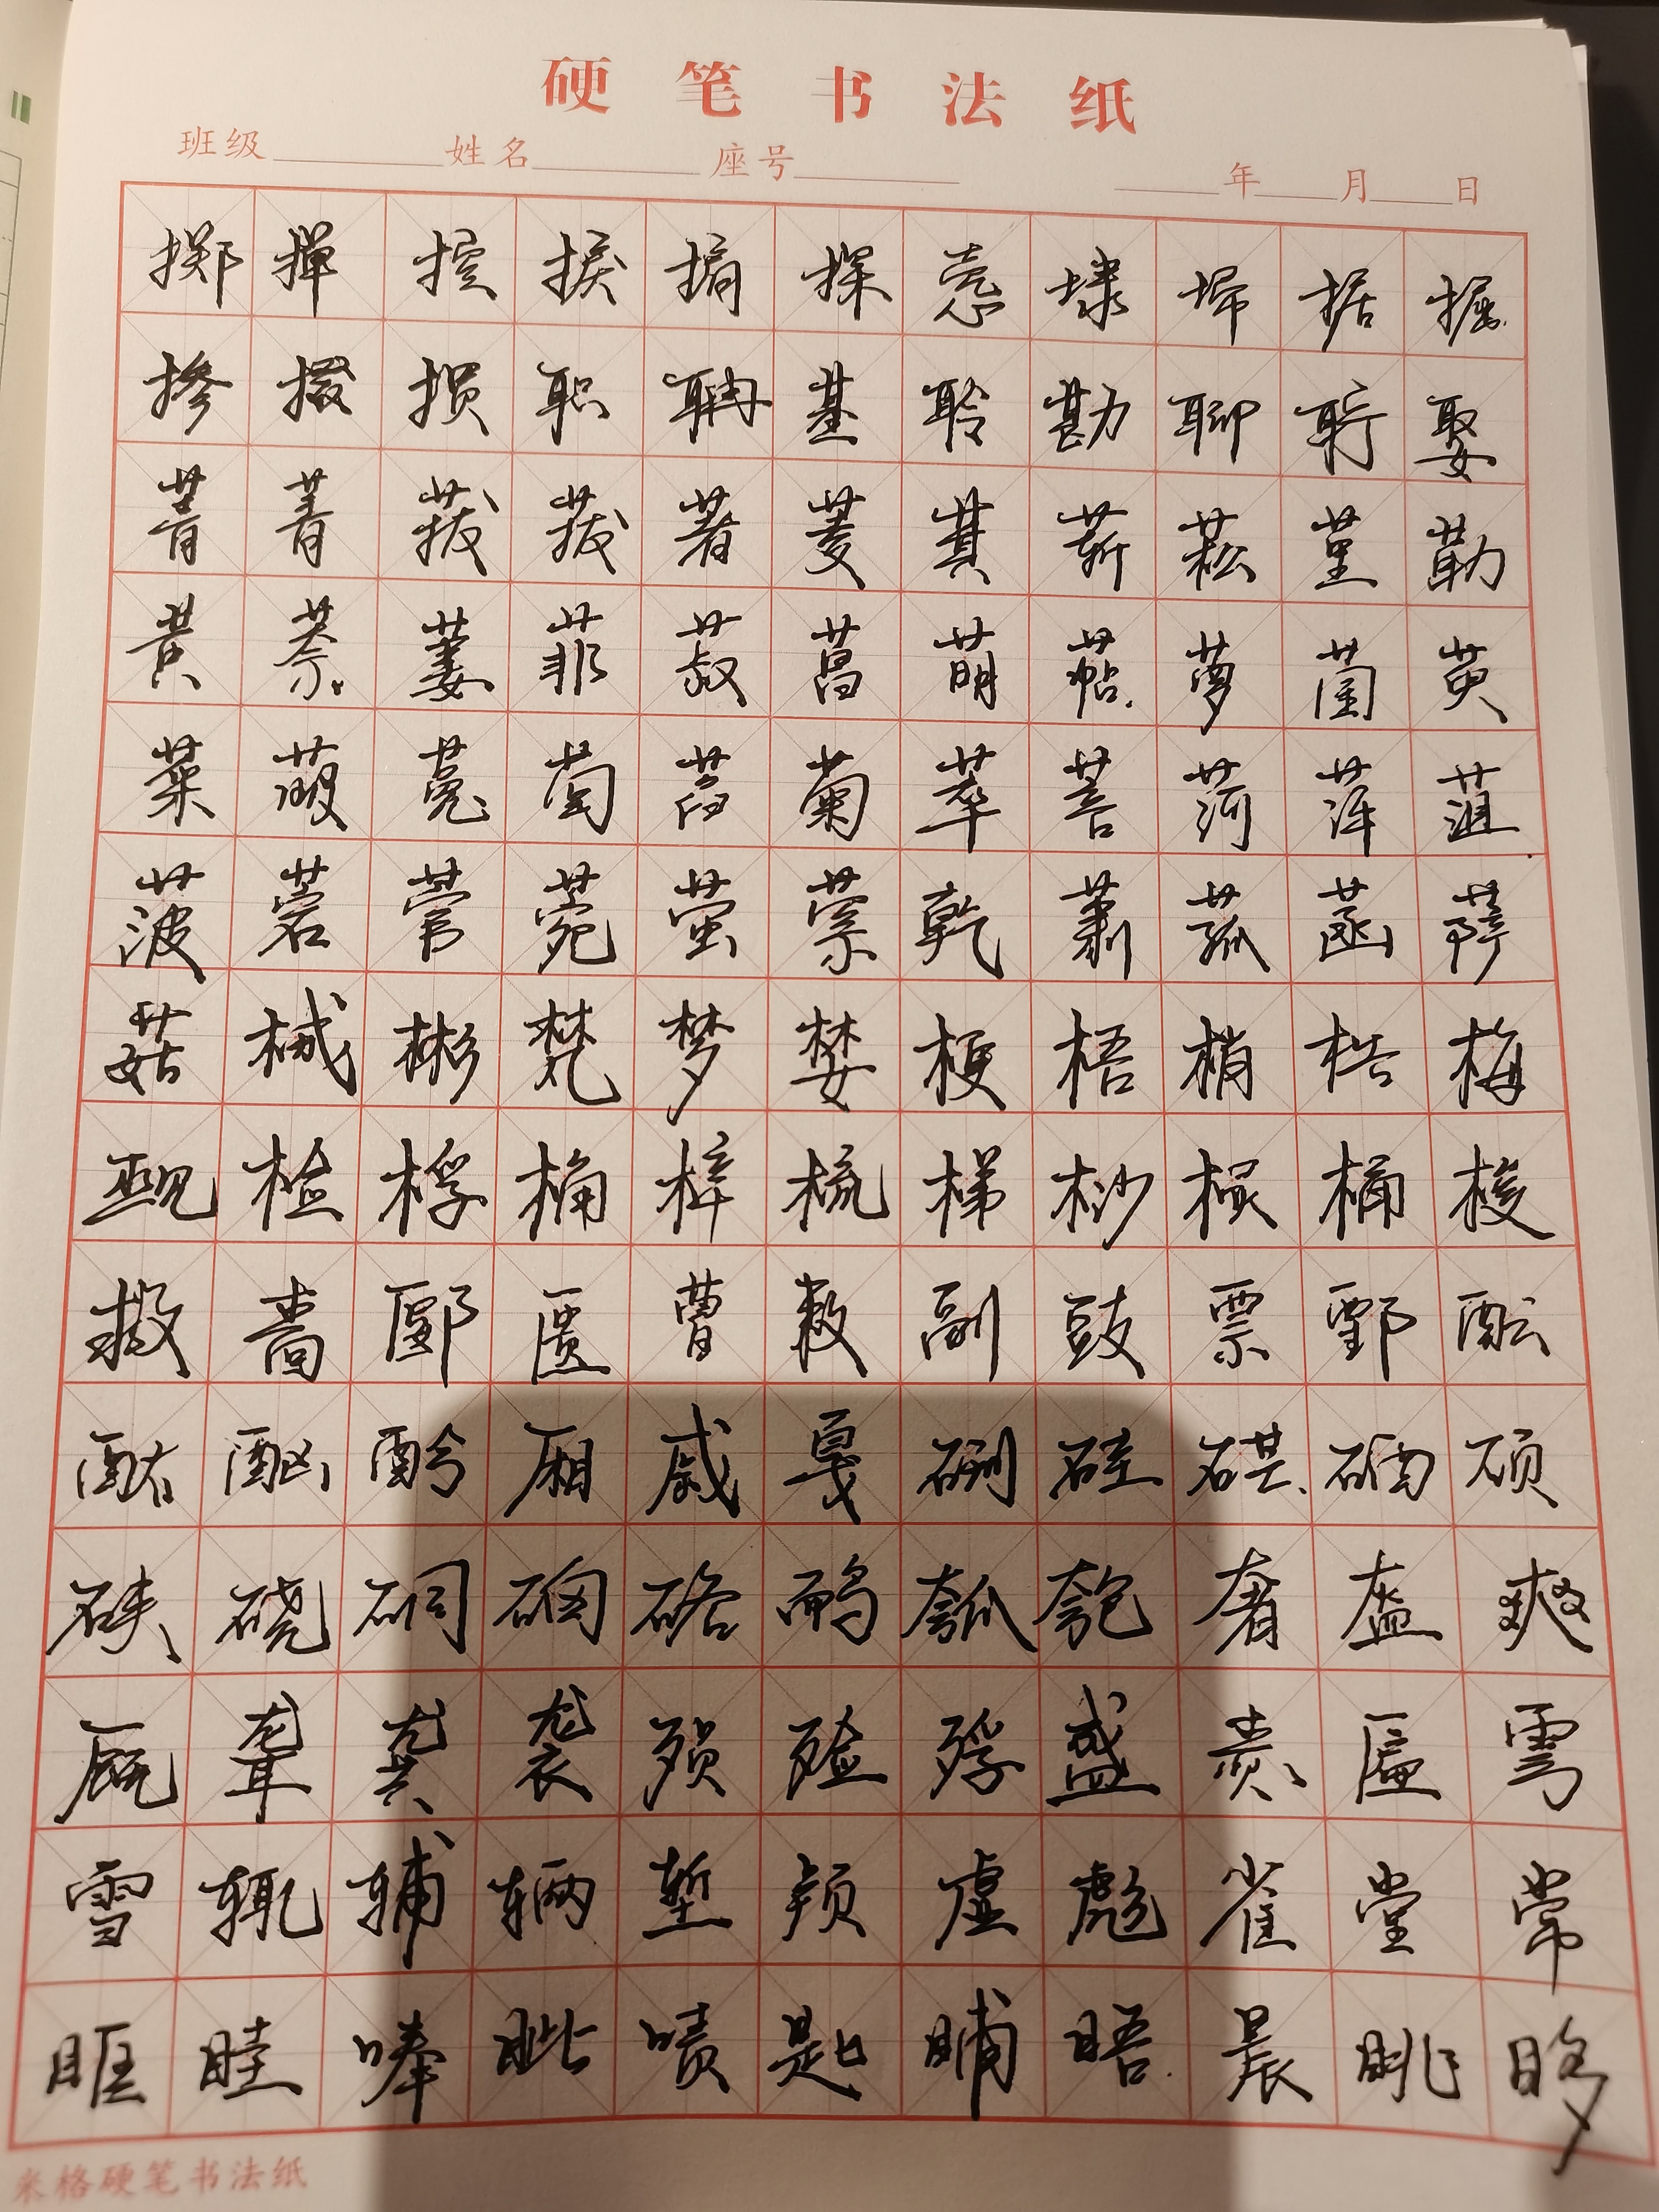 硬笔书法纸
班级 姓名 座号 年 月 日
掷 掸 控 捩 掮 探 悫 埭 埽 据 掘
掺 掇 掼 职 聃 基 聆 勘 聊 聍 娶
菁 菝 著 菱 萁 菥 菘 堇 勒
黄 萘 萋 菲 菽 菖 萌 萜 萝 菌 萸
菜 菔 菟 萄 菊 萃 菩 菏 萍 菹
菠 菪 菅 菀 萤 萦 乾 萧 菰 菡 萨
菇 械 彬 梵 梦 婪 梗 梧 梢 梏 梅
觋 检 桴 桷 梓 梳 梯 桫 棂 桶 梭
救 啬 郾 匮 曹 敕 副 豉 票 鄄 酝
酞 酗 酚 厢 戚 戛 硎 硅 硕
硖 硗 硐 硌 鸸 瓠 匏 奢 盔 爽
厩 聋 龚 袭 殒 殓 殍 盛 赉 匾 雩
雪 辄 辅 辆 堑 颅 虚 彪 雀 堂 常
眶 眭 唪 眦 啧 匙 晡 晤 晨 眺 眵
米格硬笔书法纸